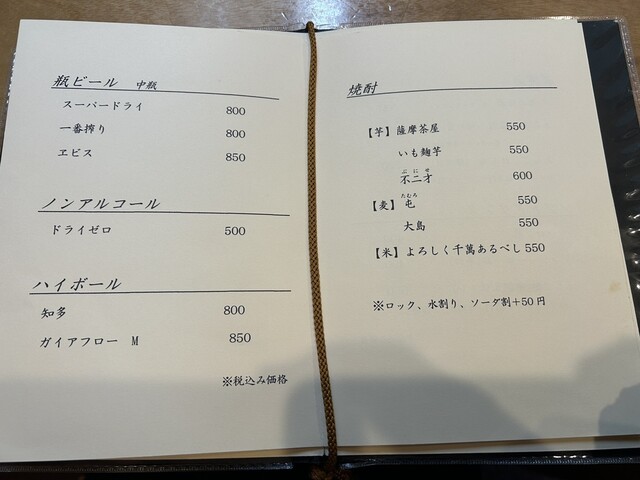 瓶ビール 中瓶
スーパードライ 800
一番搾り 800
ヱビス 850
ノンアルコール
ドライゼロ 500
ハイボール
知多 800
ガイアフロー M 850
※税込み価格
焼酎
【芋】薩摩茶屋 550
いも麹芋 550
ぶにせ
不二才 600
たむろ
【麦】屯 550
大島 550
【米】よろしく千萬あるべし 550
※ロック、水割り、ソーダ割+50円